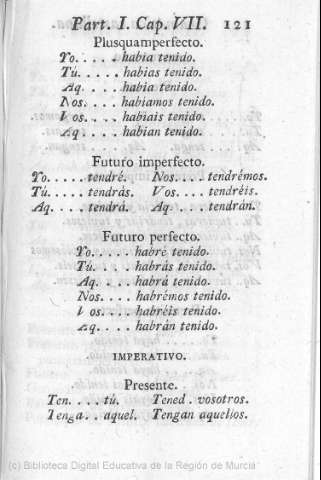 Part. I. Cap. VII. 121
Plusquamperfecto.
Yo. . . . . habia tenido.
Tú. . . . . habias tenido.
Aq. . . . . habia tenido.
Nos. . . . habiamos tenido.
Vos. . . . habiais tenido.
Aq . . . . habian tenido.
Futuro imperfecto.
Yo. . . . . tendré. Nos. . . . tendrémos.
Tú. . . . . tendrás. Vos. . . . tendréis.
Aq. . . . . tendrá. Aq. . . . . tendrán.
Futuro perfecto.
Yo. . . . . habré tenido.
Tú. . . . . habrás tenido.
Aq. . . . . habrá tenido.
Nos. . . . habrémos tenido.
Vos. . . . habréis tenido.
Aq. . . . . habrán tenido.
IMPERATIVO.
Presente.
Ten. . . . tú. Tened . vosotros.
Tenga. . aquel. Tengan aquellos.
(c) Biblioteca Digital Educativa de la Región de Murcia